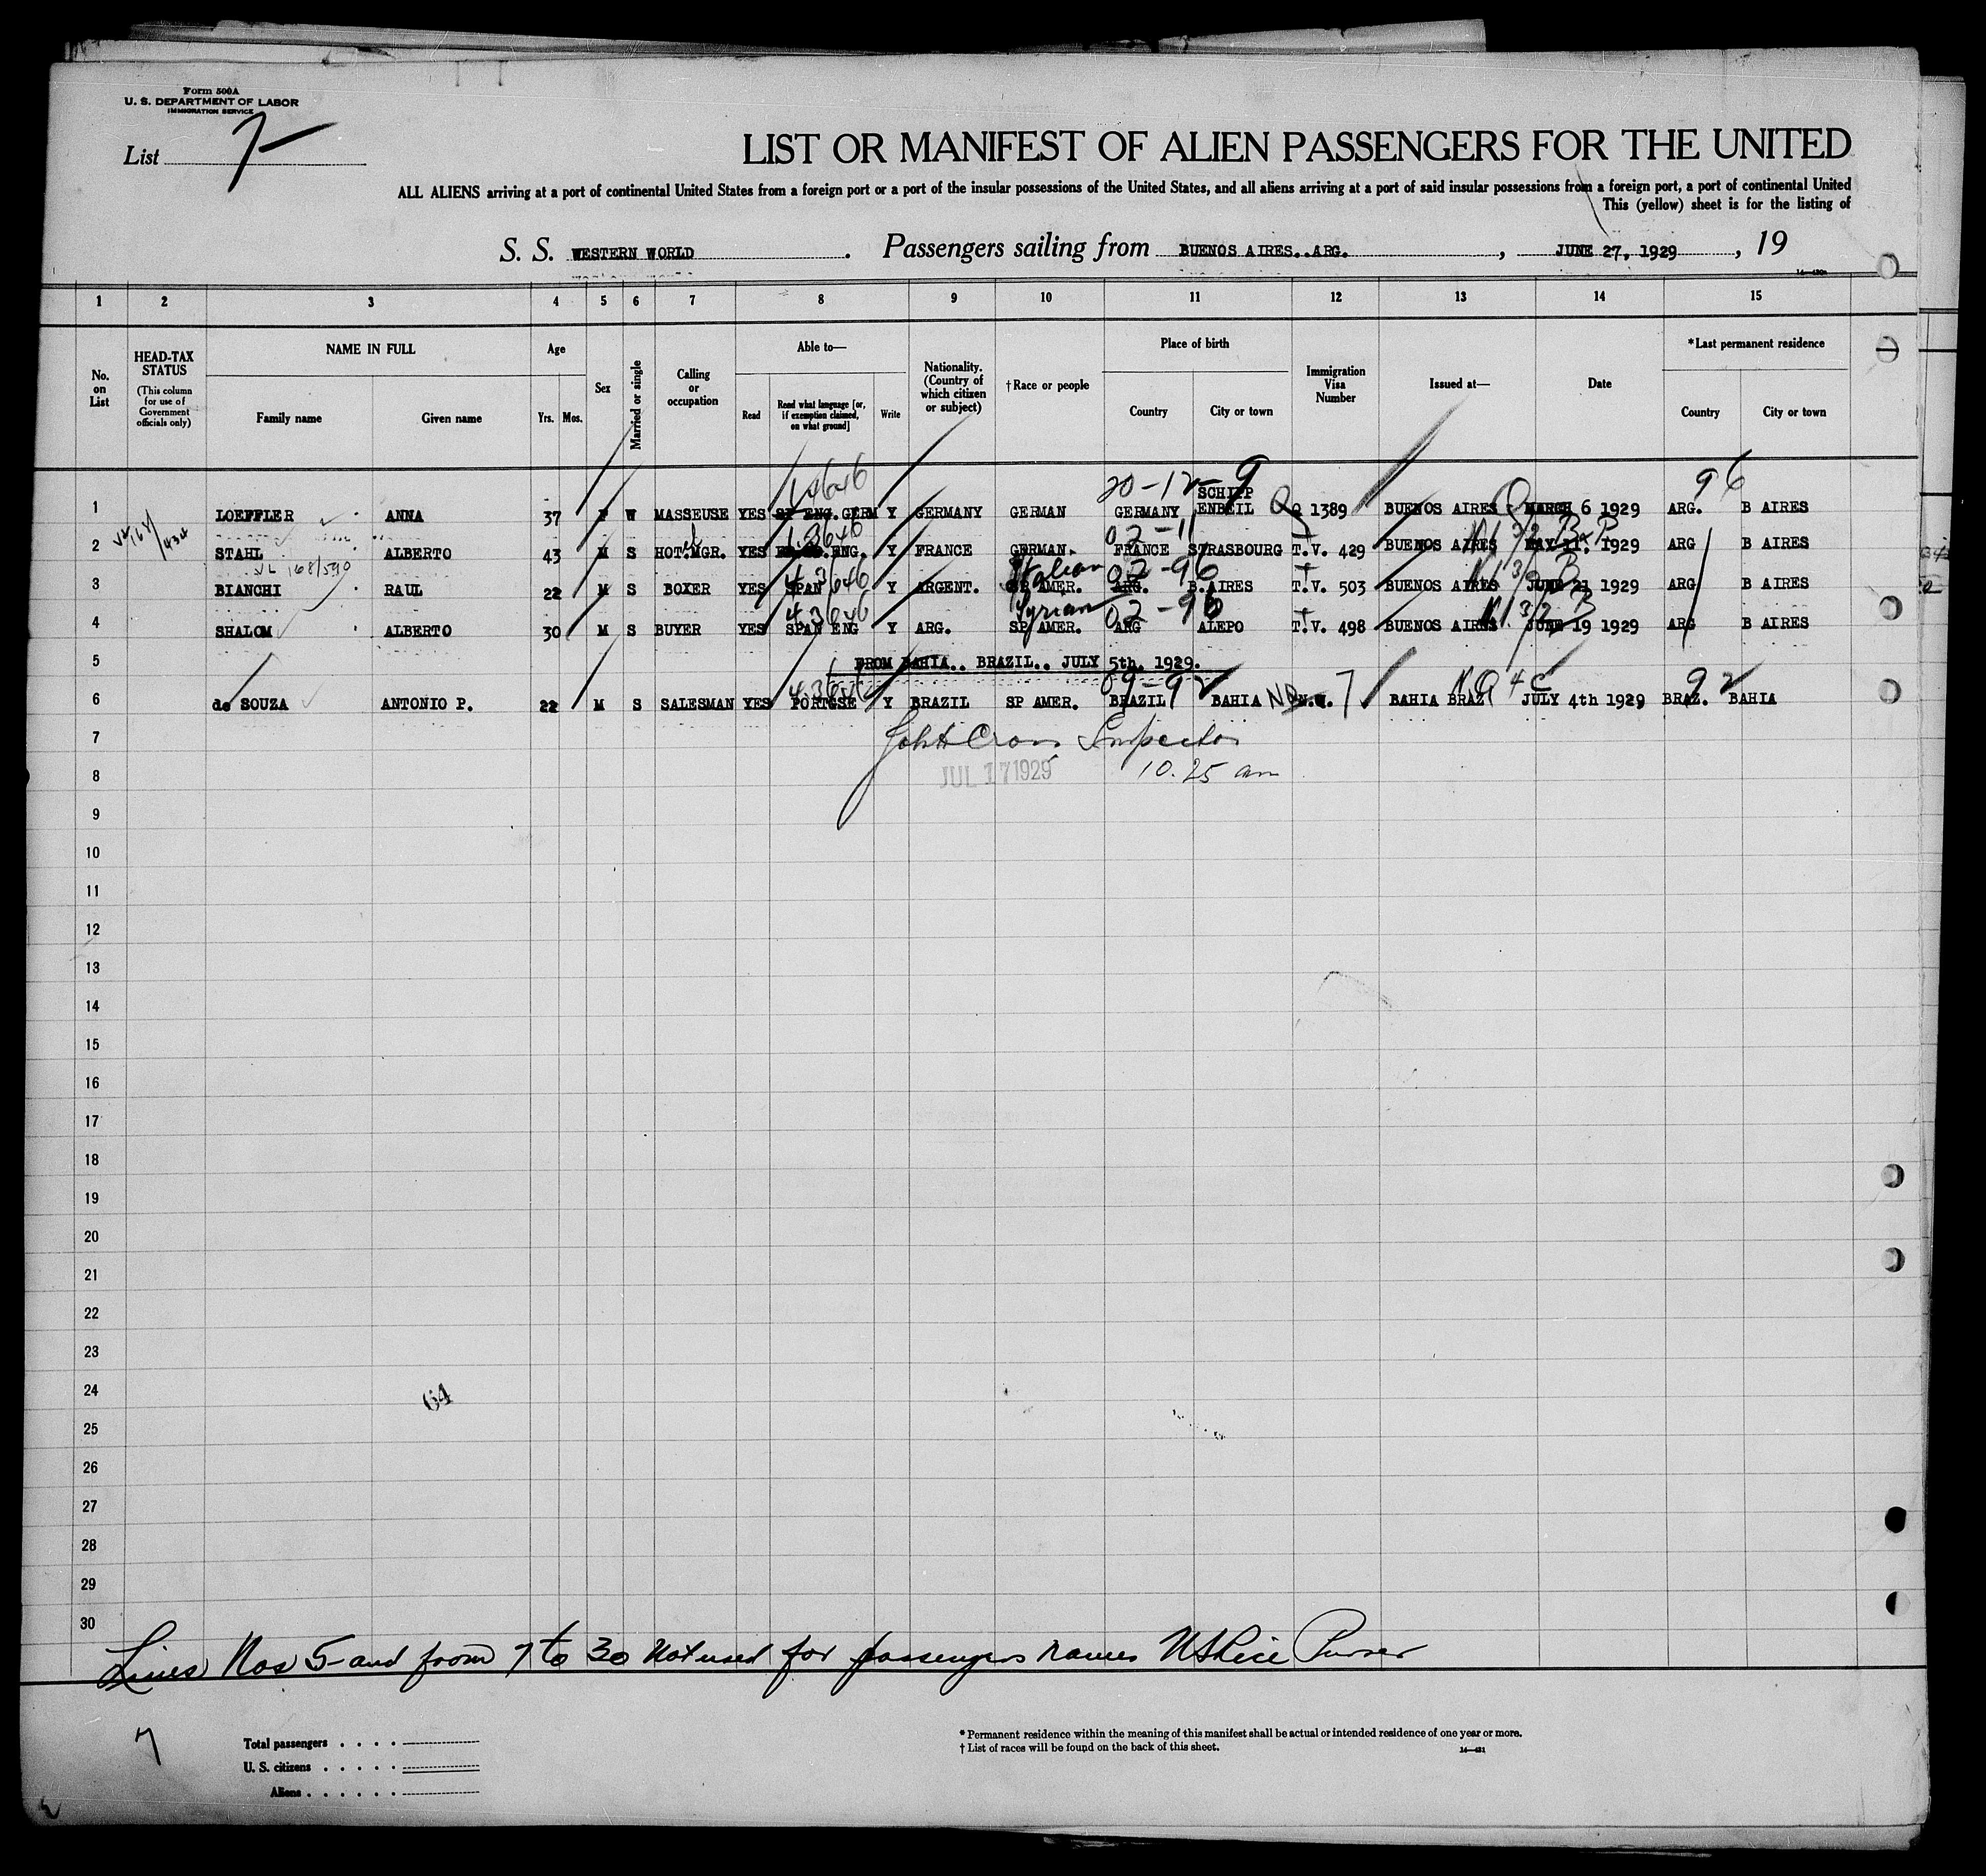 Form 500A
U. S. DEPARTMENT OF LABOR
IMMIGRATION SERVICE
List 7
LIST OR MANIFEST OF ALIEN PASSENGERS FOR THE UNITED
ALL ALIENS arriving at a port of continental United States from a foreign port or a port of the insular possessions of the United States, and all aliens arriving at a port of said insular possessions from a foreign port, a port of continental United
This (yellow) sheet is for the listing of
S. S. WESTERN WORLD . Passengers sailing from BUENOS AIRES..ARG. , JUNE 27, 1929 , 19
1 2 3 4 5 6 7 8 9 10 11 12 13 14 15
No. on List
HEAD-TAX STATUS (This column for use of Government officials only)
NAME IN FULL Family name Given name
Age Yrs. Mos.
Sex
Married or single
Calling or occupation
Able to— Read Read what language [or, if exemption claimed, on what ground] Write
Nationality. (Country of which citizen or subject)
†Race or people
Place of birth Country City or town
Immigration Visa Number
Issued at—
Date
*Last permanent residence Country City or town
20-12-9 96
1 LOEFFLER ANNA 37 F W MASSEUSE YES ENG.GERM Y GERMANY GERMAN GERMANY SCHIPP ENBEIL Q 1389 BUENOS AIRES MARCH 6 1929 ARG. B AIRES
02-11
2 STAHL ALBERTO 43 M S HOT.MGR. YES ENG. Y FRANCE GERMAN. FRANCE STRASBOURG T.V. 429 BUENOS AIRES MAY 11. 1929 ARG B AIRES
168/590
Italian 02-96
3 BIANCHI RAUL 22 M S BOXER YES SPAN Y ARGENT. SP AMER. ARG. B.AIRES T.V. 503 BUENOS AIRES JUNE 21 1929 ARG B AIRES
Syrian 02-96
4 SHALOM ALBERTO 30 M S BUYER YES SPAN ENG Y ARG. SP AMER. ARG ALEPO T.V. 498 BUENOS AIRES JUNE 19 1929 ARG B AIRES
5 FROM BAHIA.. BRAZIL.. JULY 5th. 1929.
09-92 92
6 de SOUZA ANTONIO P. 22 M S SALESMAN YES PORTGSE Y BRAZIL SP AMER. BRAZIL BAHIA 7 BAHIA BRAZ JULY 4th 1929 BRAZ. BAHIA
7 Inspector
8 JUL 17 1929 10.25 am
9
10
11
12
13
14
15
16
17
18
19
20
21
22
23
24 64
25
26
27
28
29
30
Lines Nos 5 and from 7 to 30 Not used for passengers names Purser
7
Total passengers
U. S. citizens
Aliens
*Permanent residence within the meaning of this manifest shall be actual or intended residence of one year or more.
†List of races will be found on the back of this sheet.